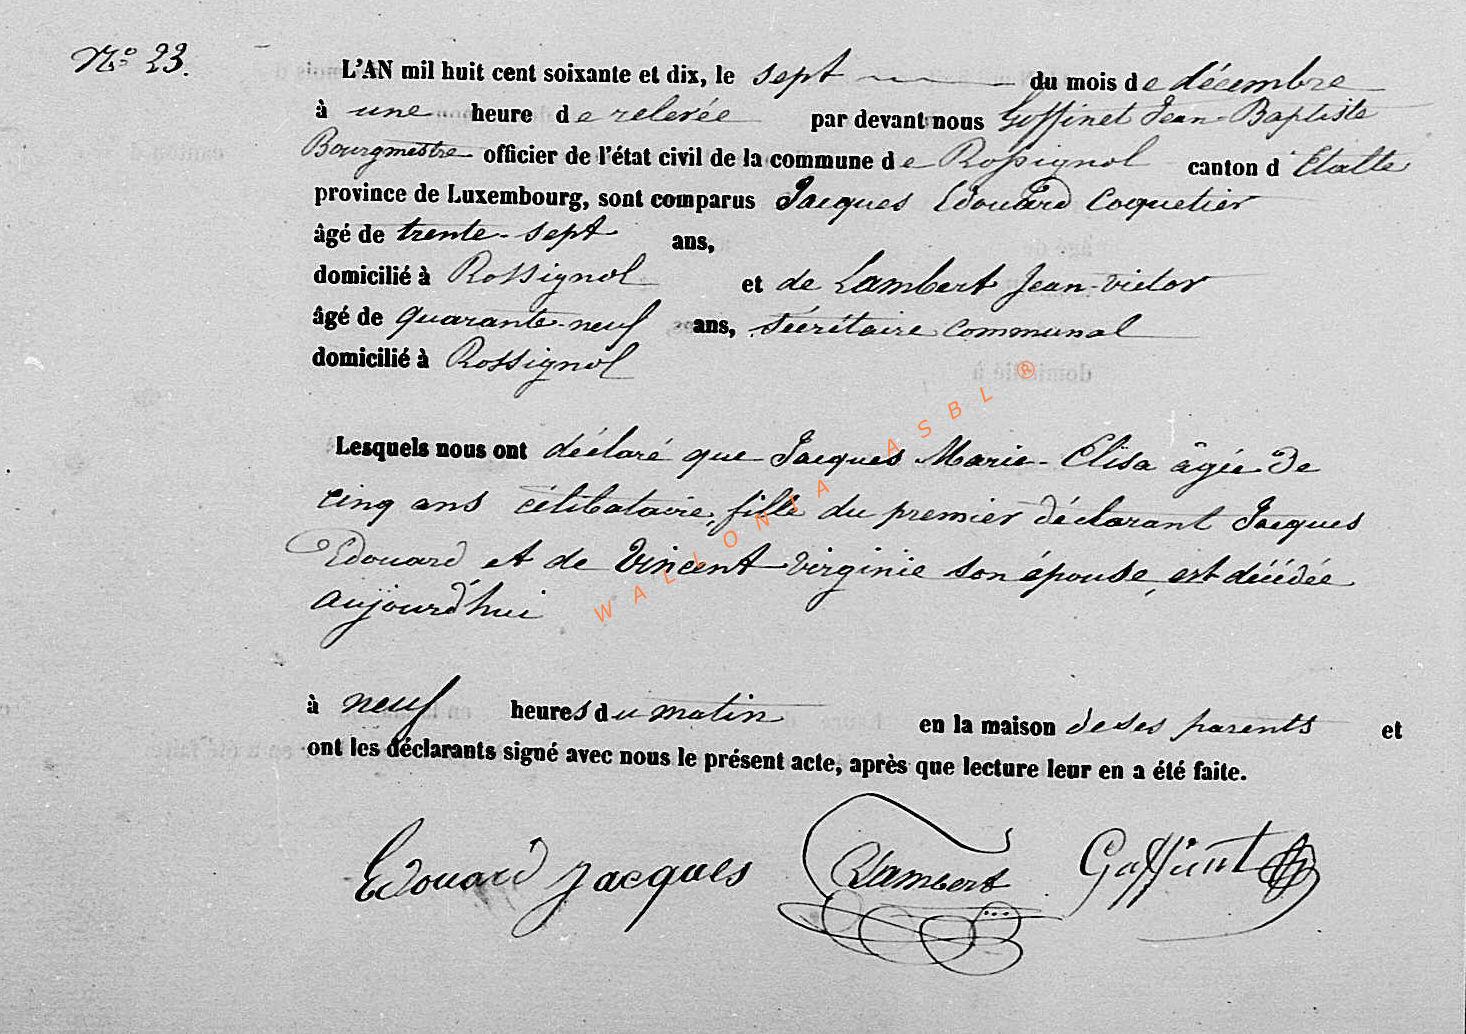 N.º 23.
L'AN mil huit cent soixante et dix, le sept du mois de décembre
à une heure de relevée par devant nous Goffinet Jean-Baptiste
Bourgmestre officier de l'état civil de la commune de Rossignol canton d'Etalle
province de Luxembourg, sont comparus Jacques Edouard Coquetier
âgé de trente-sept ans,
domicilié à Rossignol et de Lambert Jean-victor
âgé de quarante-neuf ans, sécrétaire communal
domicilié à Rossignol
Lesquels nous ont déclaré que Jacques Marie-Elisa âgée de
cinq ans célibataire, fille du premier déclarant Jacques
Edouard et de Vincent Virginie son épouse, est décédée
aujourd'hui
à neuf heures du matin en la maison de ses parents et
ont les déclarants signé avec nous le présent acte, après que lecture leur en a été faite.
Edouard Jacques Lambert Goffinet
WALLONIA ASBL ®